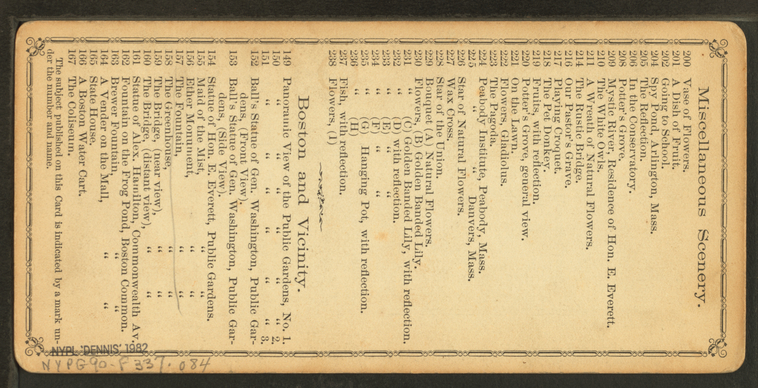 Miscellaneous Scenery.
200 Vase of Flowers.
201 A Dish of Fruit.
202 Going to School.
204 Spy Pond, Arlington, Mass.
205 The Reflection.
206 In the Conservatory.
208 Potter's Grove.
209 Mystic River, Residence of Hon. E. Everett.
210 The White Owls.
211 A Wreath of Natural Flowers.
214 The Rustic Bridge.
216 Our Pastor's Grave.
217 Playing Croquet.
218 The Pet Donkey.
219 Fruits, with reflection.
220 Potter's Grove, general view.
221 On the Lawn.
222 Flowers, Gladiolus.
223 The Pagoda.
224 Peabody Institute, Peabody, Mass.
225 " " Danvers, Mass.
226 Star of Natural Flowers.
227 Wax Cross.
228 Star of the Union.
229 Bouquet (A) Natural Flowers.
230 Flowers, (B) Golden Banded Lily.
231 " (C) Golden Banded Lily, with reflection.
232 " (D) with reflection.
233 " (E) " "
234 " (F) " "
235 " (G) Hanging Pot, with reflection.
236 " (H) "
237 Fish, with reflection.
238 Flowers, (I)
Boston and Vicinity.
149 Panoramic View of the Public Gardens, No. 1.
150 " " " " " 2.
151 " " " " " 3.
152 Ball's Statue of Gen. Washington, Public Gar-
dens, (Front View).
153 Ball's Statue of Gen. Washington, Public Gar-
dens, (Side View).
154 Statue of Hon. E. Everett, Public Gardens.
155 Maid of the Mist, " "
156 Ether Monument, " "
157 The Fountain, " "
158 The Greenhouse, " "
159 The Bridge, (near view), " "
160 The Bridge, (distant view), " "
161 Statue of Alex. Hamilton, Commonwealth Av.
162 Fountain on the Frog Pond, Boston Common.
163 Brewer Fountain, " "
164 A Vender on the Mall, " "
165 State House.
166 A Boston Water Cart.
167 The Coliseum.
The subject published on this Card is indicated by a mark un-
der the number and name.
NYPL 'DENNIS' 1982
NYPG90-F337.084